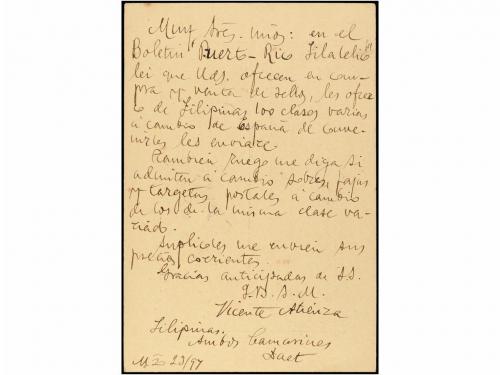 Muy Sres. míos: en el
Boletín "Puerto-Rico Filatélico"
leí que Uds. ofrecen en com-
pra y venta de sellos, les ofrez-
co de Filipinas 100 clases varias
á cambio de España de conve-
nirles les enviaré.
Tambien ruego me diga si
admiten á cambio sobres, fajas
y targetas postales á cambio
de los de la misma clase va-
riado.
Suplicoles me envien sus
precios corrientes.
Gracias anticipadas de S.S.
Q.B.S.M.
Vicente Atienza
Filipinas.
Ambos Camarines
Daet
23/97